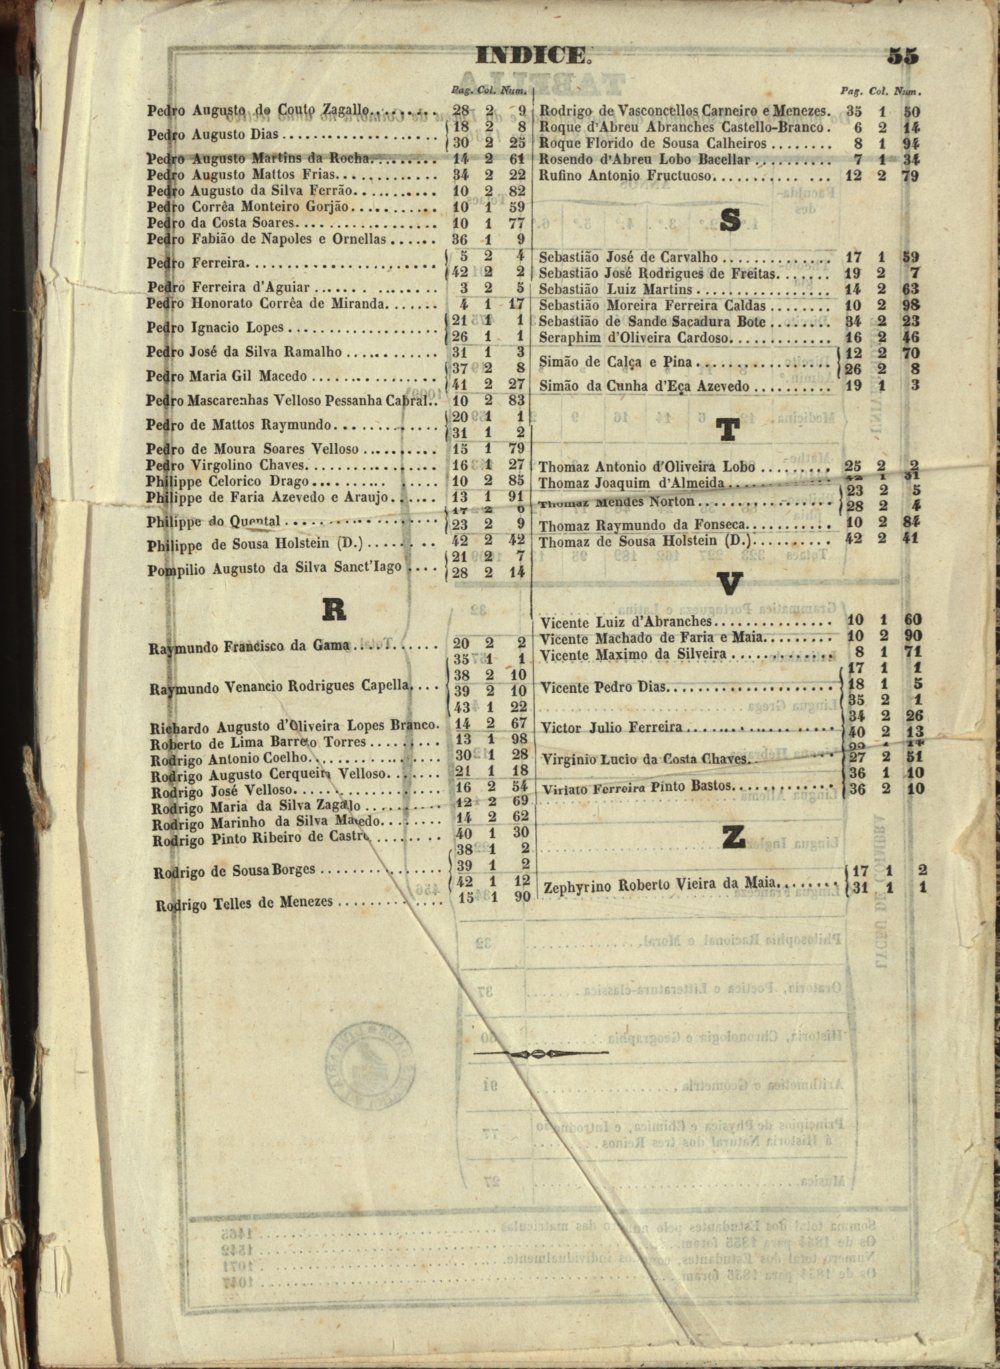 INDICE.
55
Pag. Col. Num.
Pedro Augusto do Couto Zagallo........ 28 2 9
Pedro Augusto Dias .................... { 18 2 8
30 2 25
Pedro Augusto Martins da Rocha......... 14 2 61
Pedro Augusto Mattos Frias............. 34 2 22
Pedro Augusto da Silva Ferrão.......... 10 2 82
Pedro Corrêa Monteiro Gorjão........... 10 1 59
Pedro da Costa Soares.................. 10 1 77
Pedro Fabião de Napoles e Ornellas ...... 36 1 9
Pedro Ferreira........................ { 5 2 4
42 2 2
Pedro Ferreira d'Aguiar ............... 3 2 5
Pedro Honorato Corrêa de Miranda....... 4 1 17
Pedro Ignacio Lopes ................... { 21 1 1
26 1 1
Pedro José da Silva Ramalho ........... 31 1 3
Pedro Maria Gil Macedo ................ { 37 2 8
41 2 27
Pedro Mascarenhas Velloso Pessanha Cabral.. 10 2 83
Pedro de Mattos Raymundo.............. { 20 1 1
31 1 2
Pedro de Moura Soares Velloso ......... 15 1 79
Pedro Virgolino Chaves................. 16 1 27
Philippe Celorico Drago............... 10 2 85
Philippe de Faria Azevedo e Araujo...... 13 1 91
Philippe do Quental ................... { 17 2 6
23 2 9
Philippe de Sousa Holstein (D.) ........ 42 2 42
Pompilio Augusto da Silva Sanct'Iago .... { 21 2 7
28 2 14
R
Raymundo Francisco da Gama ........... 20 2 2
Raymundo Venancio Rodrigues Capella.... { 35 1 1
38 2 10
39 2 10
43 1 22
Richardo Augusto d'Oliveira Lopes Branco. 14 2 67
Roberto de Lima Barreto Torres ......... 13 1 98
Rodrigo Antonio Coelho................ 30 1 28
Rodrigo Augusto Cerqueira Velloso....... 21 1 18
Rodrigo José Velloso................... 16 2 54
Rodrigo Maria da Silva Zagallo .......... 12 2 69
Rodrigo Marinho da Silva Macedo........ 14 2 62
Rodrigo Pinto Ribeiro de Castro......... 40 1 30
Rodrigo de Sousa Borges ............... { 38 1 2
39 1 2
42 1 12
Rodrigo Telles de Menezes ............. 15 1 90
Pag. Col. Num.
Rodrigo de Vasconcellos Carneiro e Menezes. 35 1 50
Roque d'Abreu Abranches Castello-Branco. 6 2 14
Roque Florido de Sousa Calheiros ........ 8 1 94
Rosendo d'Abreu Lobo Bacellar .......... 7 1 34
Rufino Antonio Fructuoso............... 12 2 79
S
Sebastião José de Carvalho .............. 17 1 59
Sebastião José Rodrigues de Freitas....... 19 2 7
Sebastião Luiz Martins ................. 14 2 63
Sebastião Moreira Ferreira Caldas ........ 10 2 98
Sebastião de Sande Sacadura Bote ........ 34 2 23
Seraphim d'Oliveira Cardoso............. 16 2 46
Simão de Calça e Pina .................. { 12 2 70
26 2 8
Simão da Cunha d'Eça Azevedo .......... 19 1 3
T
Thomaz Antonio d'Oliveira Lobo ......... 25 2 2
Thomaz Joaquim d'Almeida ............. 1 31
Thomaz Mendes Norton ................. { 23 2 5
28 2 4
Thomaz Raymundo da Fonseca........... 10 2 84
Thomaz de Sousa Holstein (D.).......... 42 2 41
V
Vicente Luiz d'Abranches............... 10 1 60
Vicente Machado de Faria e Maia......... 10 2 90
Vicente Maximo da Silveira ............. 8 1 71
Vicente Pedro Dias..................... { 17 1 1
18 1 5
35 2 1
Victor Julio Ferreira ................... { 34 2 26
40 2 13
Virginio Lucio da Costa Chaves.......... {
27 2 51
Viriato Ferreira Pinto Bastos............. { 36 1 10
36 2 10
Z
Zephyrino Roberto Vieira da Maia........ { 17 1 2
31 1 1